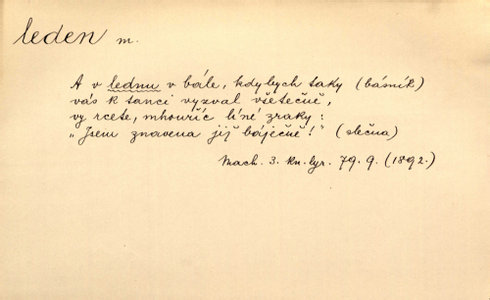 leden m.
A v lednu v bále, kdybych taky (básník)
vás k tanci vyzval všetečně,
vy rcete, mhouříc líné zraky:
"Jsem znavena již báječně!" (slečna)
Mach. 3. kn. lyr. 79. 9. (1892.)